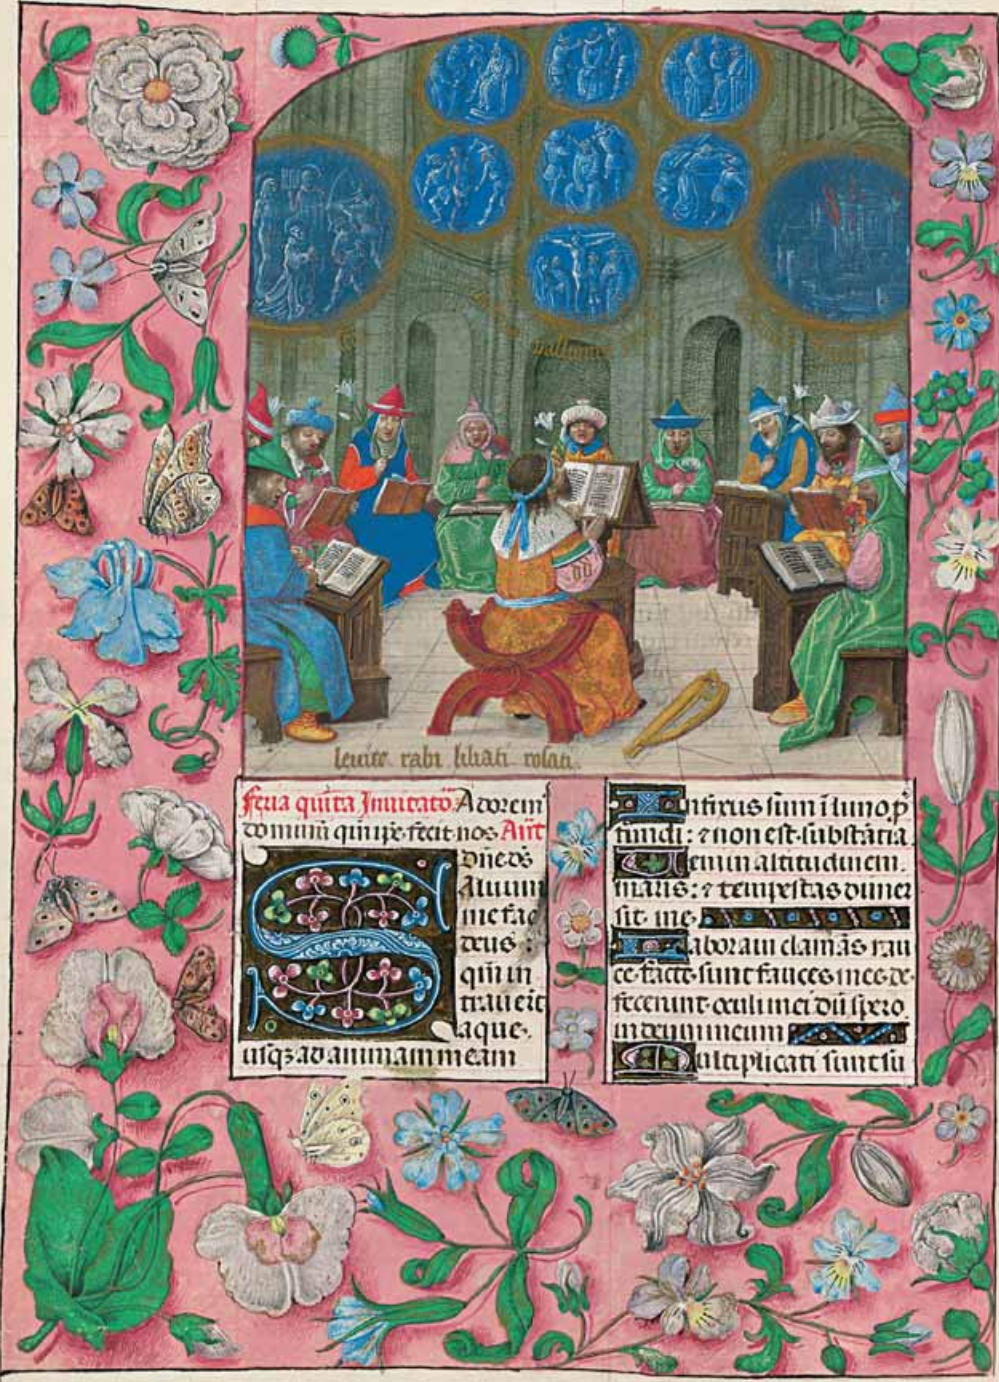 leuite rabi liliati rosati
Feria quīta Inuitatō Adorem⁹
dominū qui ip̄e fecit nos Añt
dn̄e ds̄
S Aluum
me fac
deus :
qm̄ in
trauer̄t
aque
usq₃ ad animam meam
Infixus sum ī limo p̄
fundi : ⁊ non est substātia
Ueni in altitudinem
maris : ⁊ tempestas demer
sit me
Laboraui clamās rau
ce facte sunt fauces mee de
fecerunt oculi mei dū spero
in deum meum
Multiplicati sunt su